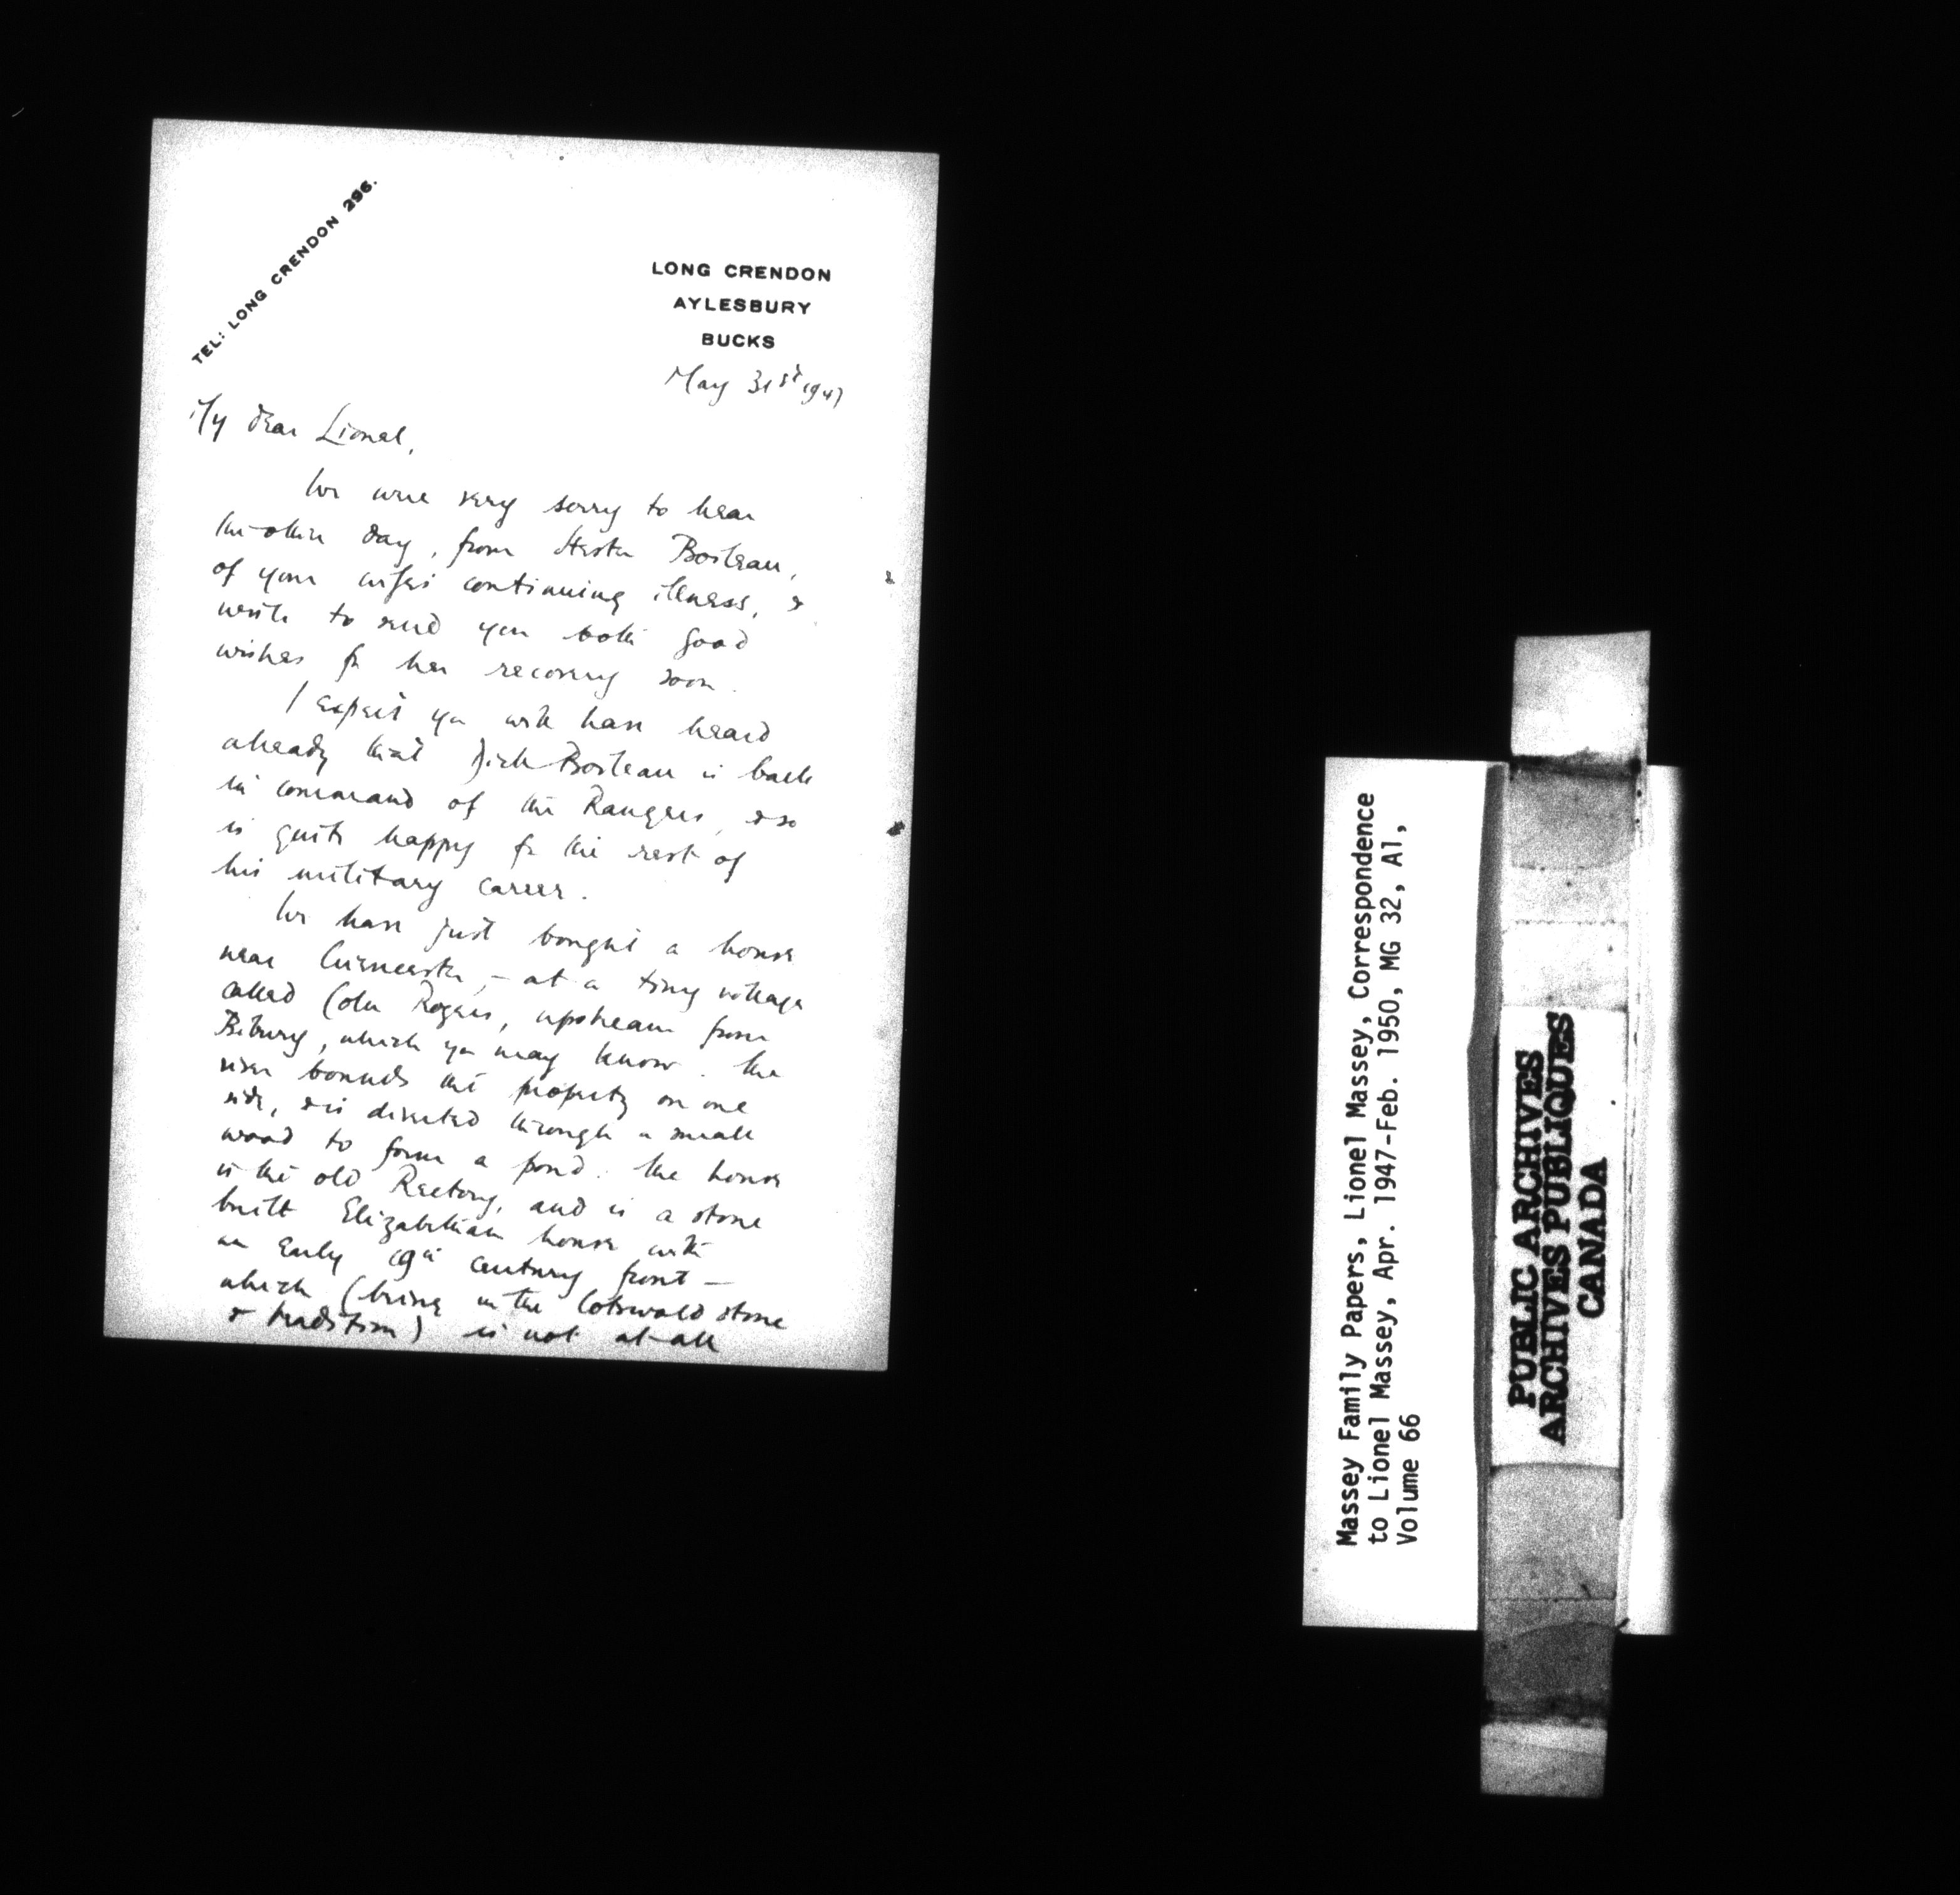 TEL: LONG CRENDON 296.
LONG CRENDON
AYLESBURY
BUCKS
May 31st 1947
My dear Lionel,
We were very sorry to hear
the other day, from Hester Bosteau,
of your wife's continuing illness, &
write to send you both good
wishes for her recovery soon.
I expect you will have heard
already that Dick Bosteau is back
in command of the Rangers, & so
is quite happy for the rest of
his military career.
We have just bought a house
near Cirencester, - at a tiny village
called Coln Rogers, upstream from
Bibury, which you may know. The
river bounds the property on one
side, & is diverted through a small
wood to form a pond. The house
is the old Rectory, and is a stone
built Elizabethan house with
an Early 19th century front —
which (being in the Cotswold stone
& tradition) is not at all
Massey Family Papers, Lionel Massey, Correspondence
to Lionel Massey, Apr. 1947-Feb. 1950, MG 32, A1,
Volume 66
PUBLIC ARCHIVES
ARCHIVES PUBLIQUES
CANADA